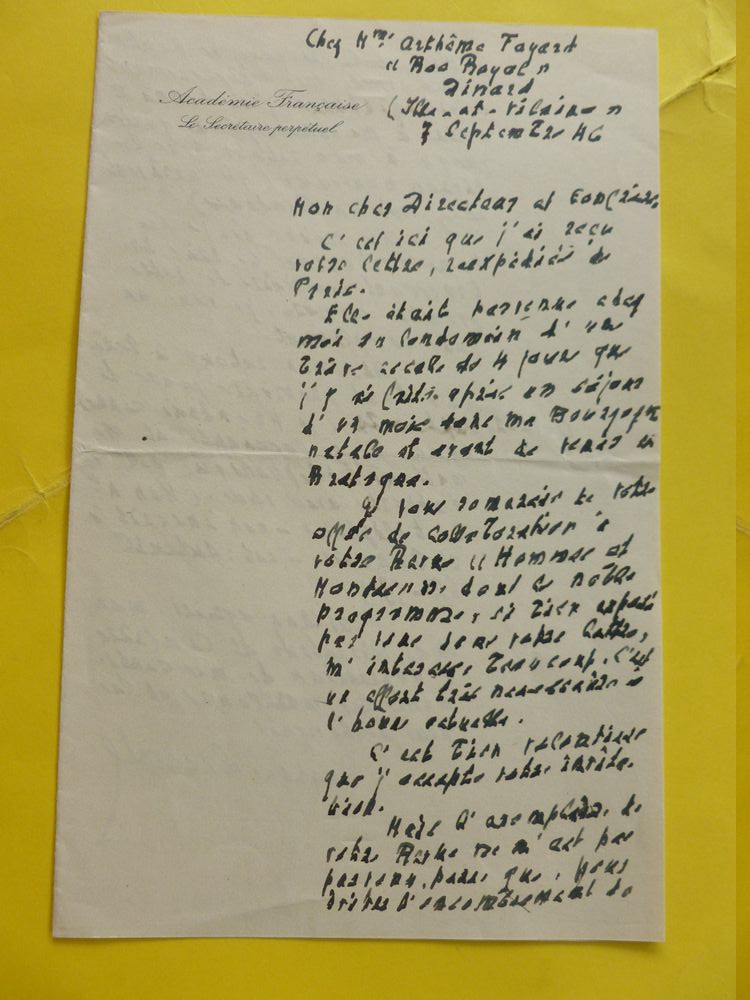 Chez Mme Arthème Fayard
"Roo Royal"
Dinard
(Ille-et-Vilaine)
7 Septembre 46
Académie Française
Le Secrétaire perpétuel
Mon cher Directeur et
C'est ici que j'ai reçu
votre lettre, réexpédiée de
Paris.
Elle était parvenue chez
moi au lendemain d'une
brève escale de 4 jours que
j'y ai faite après un séjour
d'un mois dans ma Bourgogne
natale et avant de venir en
Bretagne.
Je vous remercie de votre
offre de collaboration à
votre Revue "Hommes et
Mondes", dont le noble
programme, si bien exposé
par vous dans votre lettre,
m'intéresse beaucoup. C'est
un effort très nécessaire à
l'heure actuelle.
C'est bien volontiers
que j'accepte votre invita-
tion.
Mais l'exemplaire de
votre Revue ne m'est pas
parvenu, parce que,
d'encombrement de